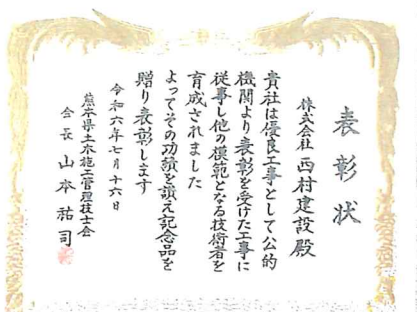 表彰状
株式会社 西村建設 殿
貴社は優良工事として公的
機関より表彰を受けた工事に
従事し他の模範となる技術者を
育成されました
よってその功績を讃え記念品を
贈り表彰します
令和六年七月十六日
熊本県土木施工管理技士会
会長 山本祐司